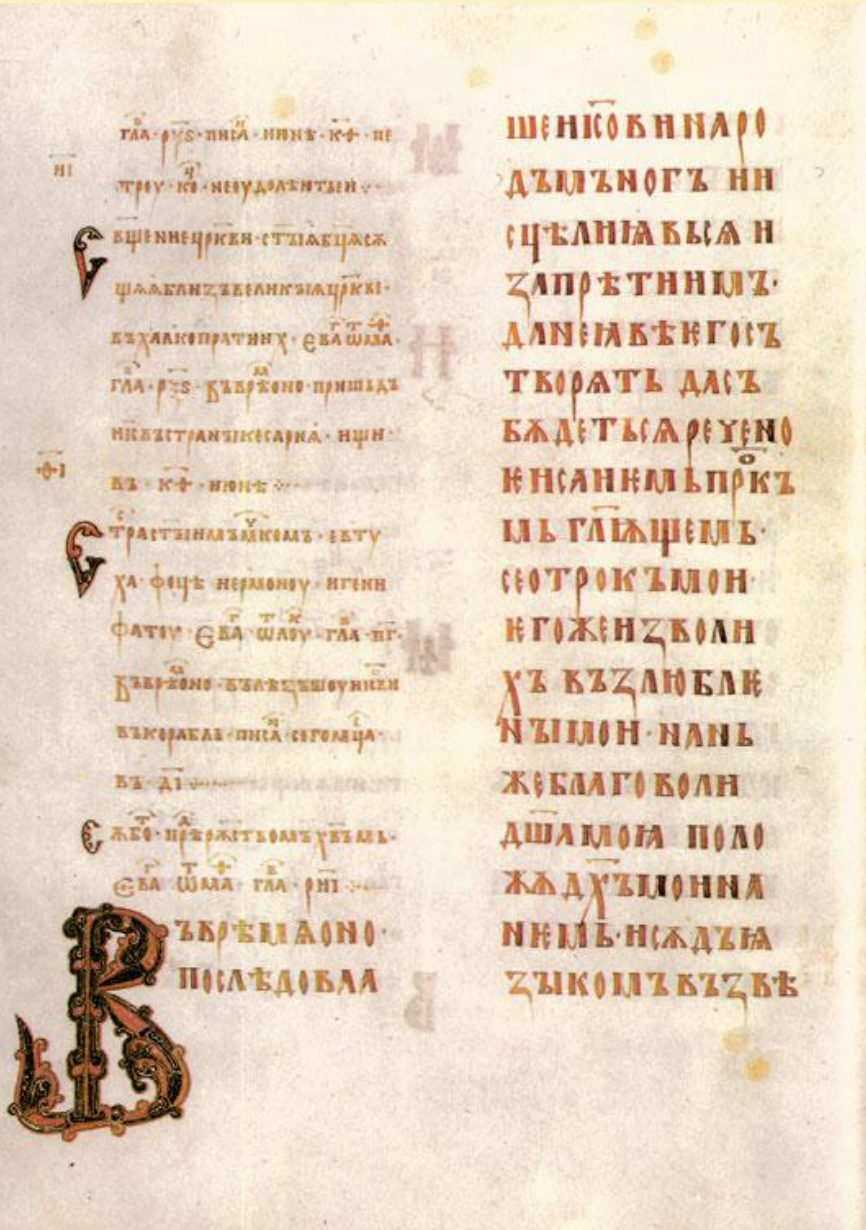 гл҃а · рꙋѕ · писⷶ · июнѣ · к҃ѳ · пе
н҃і
троу · ко · неоудолѣнтьеи ·:·
с҃вщениецр҃кви · ст҃ыѩбц҃ѧсѫ
щѧѩблизъвеликыѩцр҃кве ·
въхалкопратиих · еѵⷢ҇аѿмаⷴ҇ ·
гл҃а · рꙋѕ · въврⷨ҇ѣоно · пришьдъ
ис҃въстраныкесариѩ · ищи ·
ѳ҃і
въ · к҃ѳ · июнѣ ·:·
Страстыимъмⷱ҇комъ · евъту
ха · фоцѣ · иермоноу · игени
фатоу · Еѵⷢ҇а ѿлоуⷦ҇ · гл҃а · п҃г ·
Въврⷨ҇ѣоно · вълѣзъшоуис҃ви
въкорабль · писⷩ҇а · сегомцⷭ҇а ·
въ · д҃і
Сѫбоⷮ · прѣрⷤⷣ҇ьствомьхв҃ъмь ·
Еѵⷢ҇а ѿмаⷴ҇ · гл҃а · рн҃і ·:·
Въврѣмѧоно ·
послѣдоваа
шеис҃овинаро
дъмъногъ ии
сцѣлиꙗвьсѧ и
запрѣтиимъ ·
данеꙗвѣѥгосъ
творѧть дасъ
бѫдетьсѧречено
ѥисаиѥмьпрⷪ҇къ
мь гл҃ѭщемь ·
сеотрокъмои ·
ѥгожеизволи
хъ възлюблѥ
ныимои · нань
жеблаговоли
дш҃амоꙗ поло
жѫдх҃ъмоина
нѥмь · исѫдъꙗ
зыкомъвъзвѣ